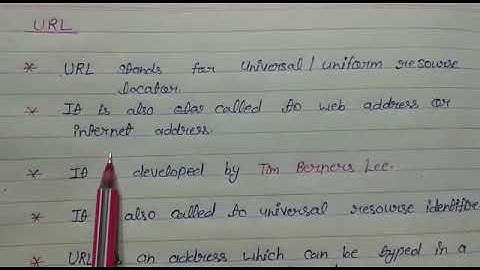 URL
* URL stands for universal / uniform resourse
locator.
* It is also called to web address or
internet address.
* It developed by Tim Berners Lee.
* It also called to universal resourse identifire
* URL is an address which can be typed in a